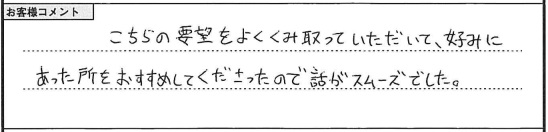 お客様コメント
こちらの要望をよくくみ取っていただいて、好みに
あった所をおすすめしてくださったので話がスムーズでした。